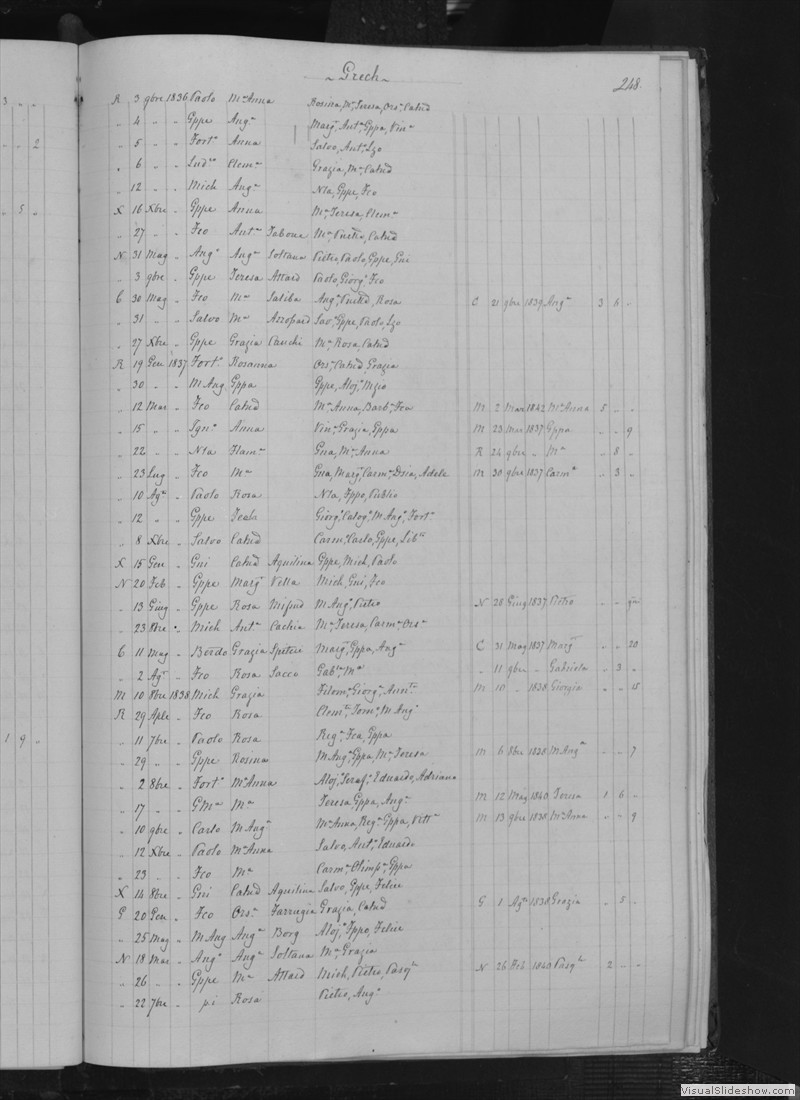 Grech
248.
R 3 9bre 1836 Paolo Mª Anna Rosina, Mª Teresa, Orsª, Catud
„ 4 „ „ Gppe Angª Margª, Antª, Gppa, Vinª
„ 5 „ „ Fortº Anna Salvo, Antº, Lzo
„ 6 „ „ Ludco Clemª Grazia, Mª, Catud
„ 12 „ „ Mich Angª Nla, Gppe, Fco
X 16 Xbre „ Gppe Anna Mª Teresa, Clemª
„ 27 „ „ Fco Antª Tabone Mª, Catud
N 31 Mag „ Angº Angª Soltana Pietro, Paolo, Gppe, Gni
„ 3 9bre „ Gppe Teresa Attard Paolo, Giorgº, Fco
C 30 Mag „ Fco Mª Saliba Angª, Rosa C 21 9bre 1839 Angª 3 6 „
„ 31 „ „ Salvo Mª Azzopard Savª, Gppe, Paolo, Lzo
„ 27 Xbre „ Gppe Grazia Cauchi Mª Rosa, Catud
R 19 Gen 1837 Fortº Rosanna Orsª, Catud, Grazia
„ 30 „ „ M Ang Gppa Gppe, Alojº, Mzio
„ 12 Mar „ Fco Catud Mª Anna, Barbª, Fca M 2 Mar 1842 Mª Anna 5 „ „
„ 15 „ „ Ignº Anna Vinª, Grazia, Gppa M 23 Mar 1837 Gppa „ „ 9
„ 22 „ „ Nla Flamª Gna, Mª Anna R 24 9bre „ Mª „ 8 „
„ 23 Lug „ Fco Mª Gna, Margª, Carmª, Dzia, Adele M 30 9bre 1837 Carmª „ 3 „
„ 10 Agº „ Paolo Rosa Nla, Fppo, Publio
„ 12 „ „ Gppe Giorgº, Calogº, M Angº, Fortº
„ 8 Xbre „ Salvo Catud Carmº, Carlo, Gppe,
X 15 Gen „ Gni Catud Aquilina Gppe, Mich, Paolo
N 20 Feb „ Gppe Margª Vella Mich, Gni, Fco
„ 13 Giug „ Gppe Rosa Mifsud M Angº, Pietro N 28 Giug 1837 Pietro „ „
„ 23 8bre „ Mich Antª Cachia Mª Teresa, Carmª, Orsª
C 11 Mag „ Bordo Grazia Speteri Margª, Gppa, Angª C 31 Mag 1837 Margª „ „ 20
„ 2 Agº „ Fco Rosa Sacco Gabla, Mª „ 11 9bre „ Gabriela „ 3 „
M 10 8bre 1838 Mich Grazia Filomª, Giorgª, M 10 „ 1838 Giorgia „ „ 15
R 29 Aple „ Fco Rosa Clemte, Tomº, M Angº
„ 11 7bre „ Paolo Rosa Regª, Fca, Gppa
„ 29 „ „ Gppe Rosina M Angª, Gppa, Mª Teresa M 6 8bre 1838 M Angª „ „ 7
„ 2 8bre „ Fortº Mª Anna Aloj, Eduardo, Adriana
„ 17 „ „ G Mª Mª Teresa, Gppa, Angª M 12 Mag 1840 Teresa 1 6 „
„ 10 9bre „ Carlo M Angª Mª Anna, Regª, Gppa, Vittª M 13 9bre 1838 Mª Anna „ „ 9
„ 12 Xbre „ Paolo Mª Anna Salvo, Antº, Eduardo
„ 23 „ „ Fco Mª Carmª, Olimpª, Gppa
X 14 8bre „ Gni Catud Aquilina Salvo, Gppe, Felice
G 20 Gen „ Fco Orsª Farrugia Grazia, Catud G 1 Agº 1838 Grazia „ 5 „
„ 25 Mag „ M Ang Angª Borg Alojº, Fppo, Felice
N 18 Mar „ Angº Angª Soltana Mª Grazia
„ 26 „ „ Gppe Mª Attard Mich, Pietro, Pasqle N 26 Feb 1840 Pasqle 2 „ „
„ 22 7bre „ Rosa Pietro, Angª
3 „ „
„ „ 2
„ 5 „
1 9 „
VisualSlideshow.com